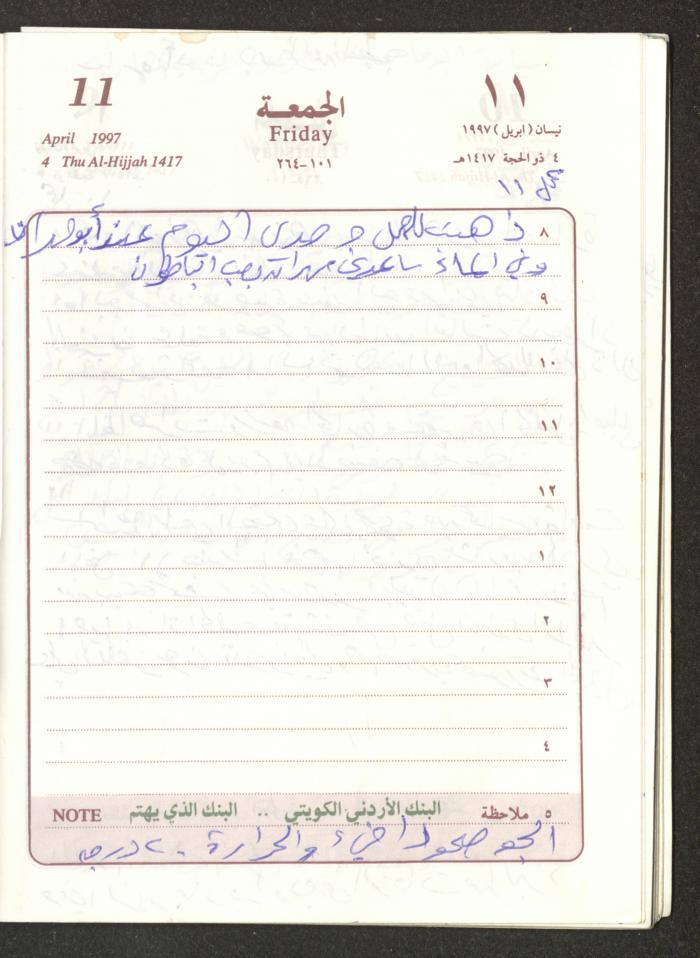 11
١١
الجمعة
Friday
April 1997
نيسان (ابريل) ١٩٩٧
4 Thu Al-Hijjah 1417
٤ ذو الحجة ١٤١٧هـ
١٠١-٢٦٤
عمل ١١
٨
ذهبت للعمل وحدي اليوم عند أبو
وفي المساء ساعدني
٩
١٠
١١
١٢
١
٢
٣
٤
٥ ملاحظة البنك الأردني الكويتي .. البنك الذي يهتم NOTE
الجو صحو دافيء والحرارة ٢٠ درجه